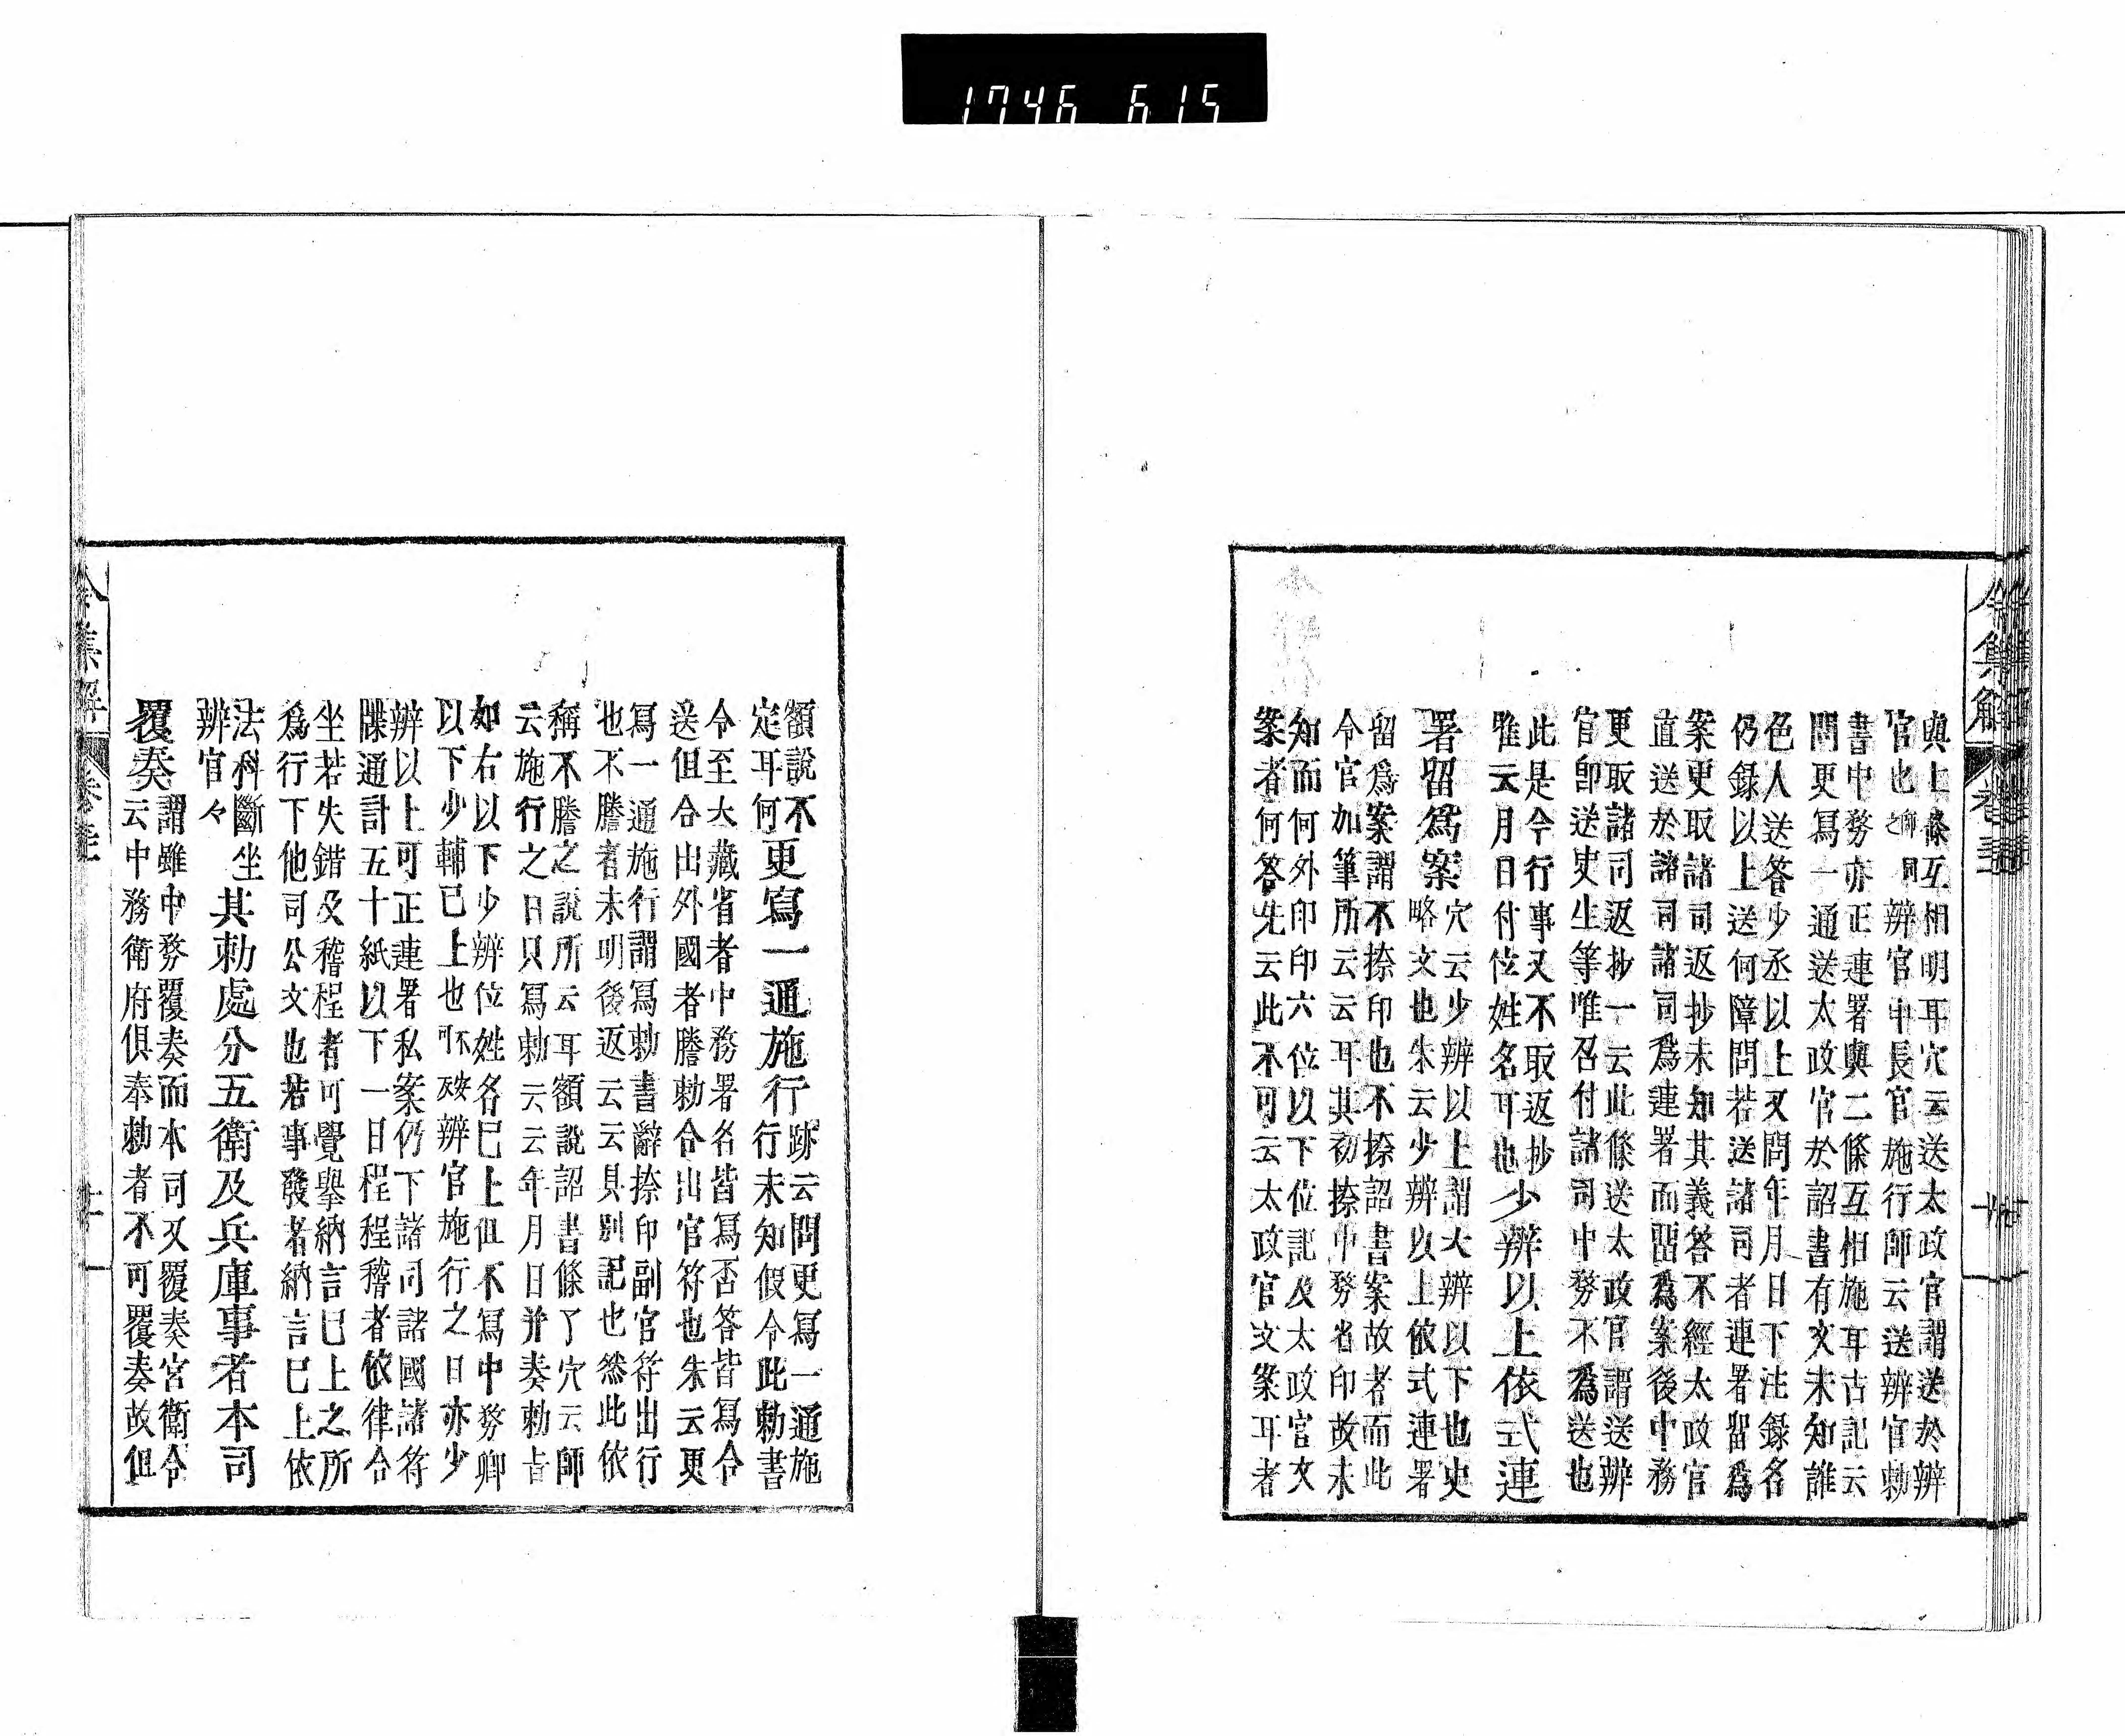 1746 615
令集解
卷三十一
與上條互相明耳穴云送太政官謂送於辨
官也 師同之 辨官中長官 施行師云送辨官勅
書中務亦正連署與二條互相施耳古記云
問更寫一通送太政官於詔書有文未知誰
色人送答少丞以上又問年月日下注錄名
仍錄以上送何障問若送諸司者連署留爲
案更取諸司返抄未知其義答不經太政官
直送於諸司諸司爲連署而留爲案後中務
更取諸司返抄一云此條送太政官謂送辨
官卽送史生等唯召付諸司中務不爲送也
此是令行事又不取返抄
雖云月日付位姓名耳也
少辨以上依式連
署留爲案
穴云少辨以上謂大辨以下也史
略文也朱云少辨以上依式連署
留爲案謂不捺印也不捺詔書案故者而此
令官加筆所云云耳其初捺中務省印故未
知而何外印印六位以下位記及太政官文
案者何答先云此不可云太政官文案耳者
額說不
定耳何
更寫一通施行
跡云問更寫一通施
行未知假令此勅書
令至大藏省者中務署名皆寫否答皆寫令
送但合出外國者謄勅合出官符也朱云更
寫一通施行謂寫勅書辭捺印副官符出行
也不謄者未明後返云云具別記也然此依
稱不謄之說所云耳額說詔書條了穴云師
云施行之日只寫勅云云年月日并奏勅旨
如右以下少辨位姓名已上但不寫中務卿
以下少輔已上也 辨官施行之日亦少
辨以上可正連署私案仍下諸司諸國諸符
牒通計五十紙以下一日程程稽者依律合
坐若失錯及稽程者可覺擧納言已上之所
爲行下他司公文也若事發者納言已上依
法科斷坐
辨官々
其勅處分五衛及兵庫事者本司
覆奏
謂雖中務覆奏而本司又覆奏宮衛令
云中務衛府俱奉勅者不可覆奏故但
令集解
卷三十一